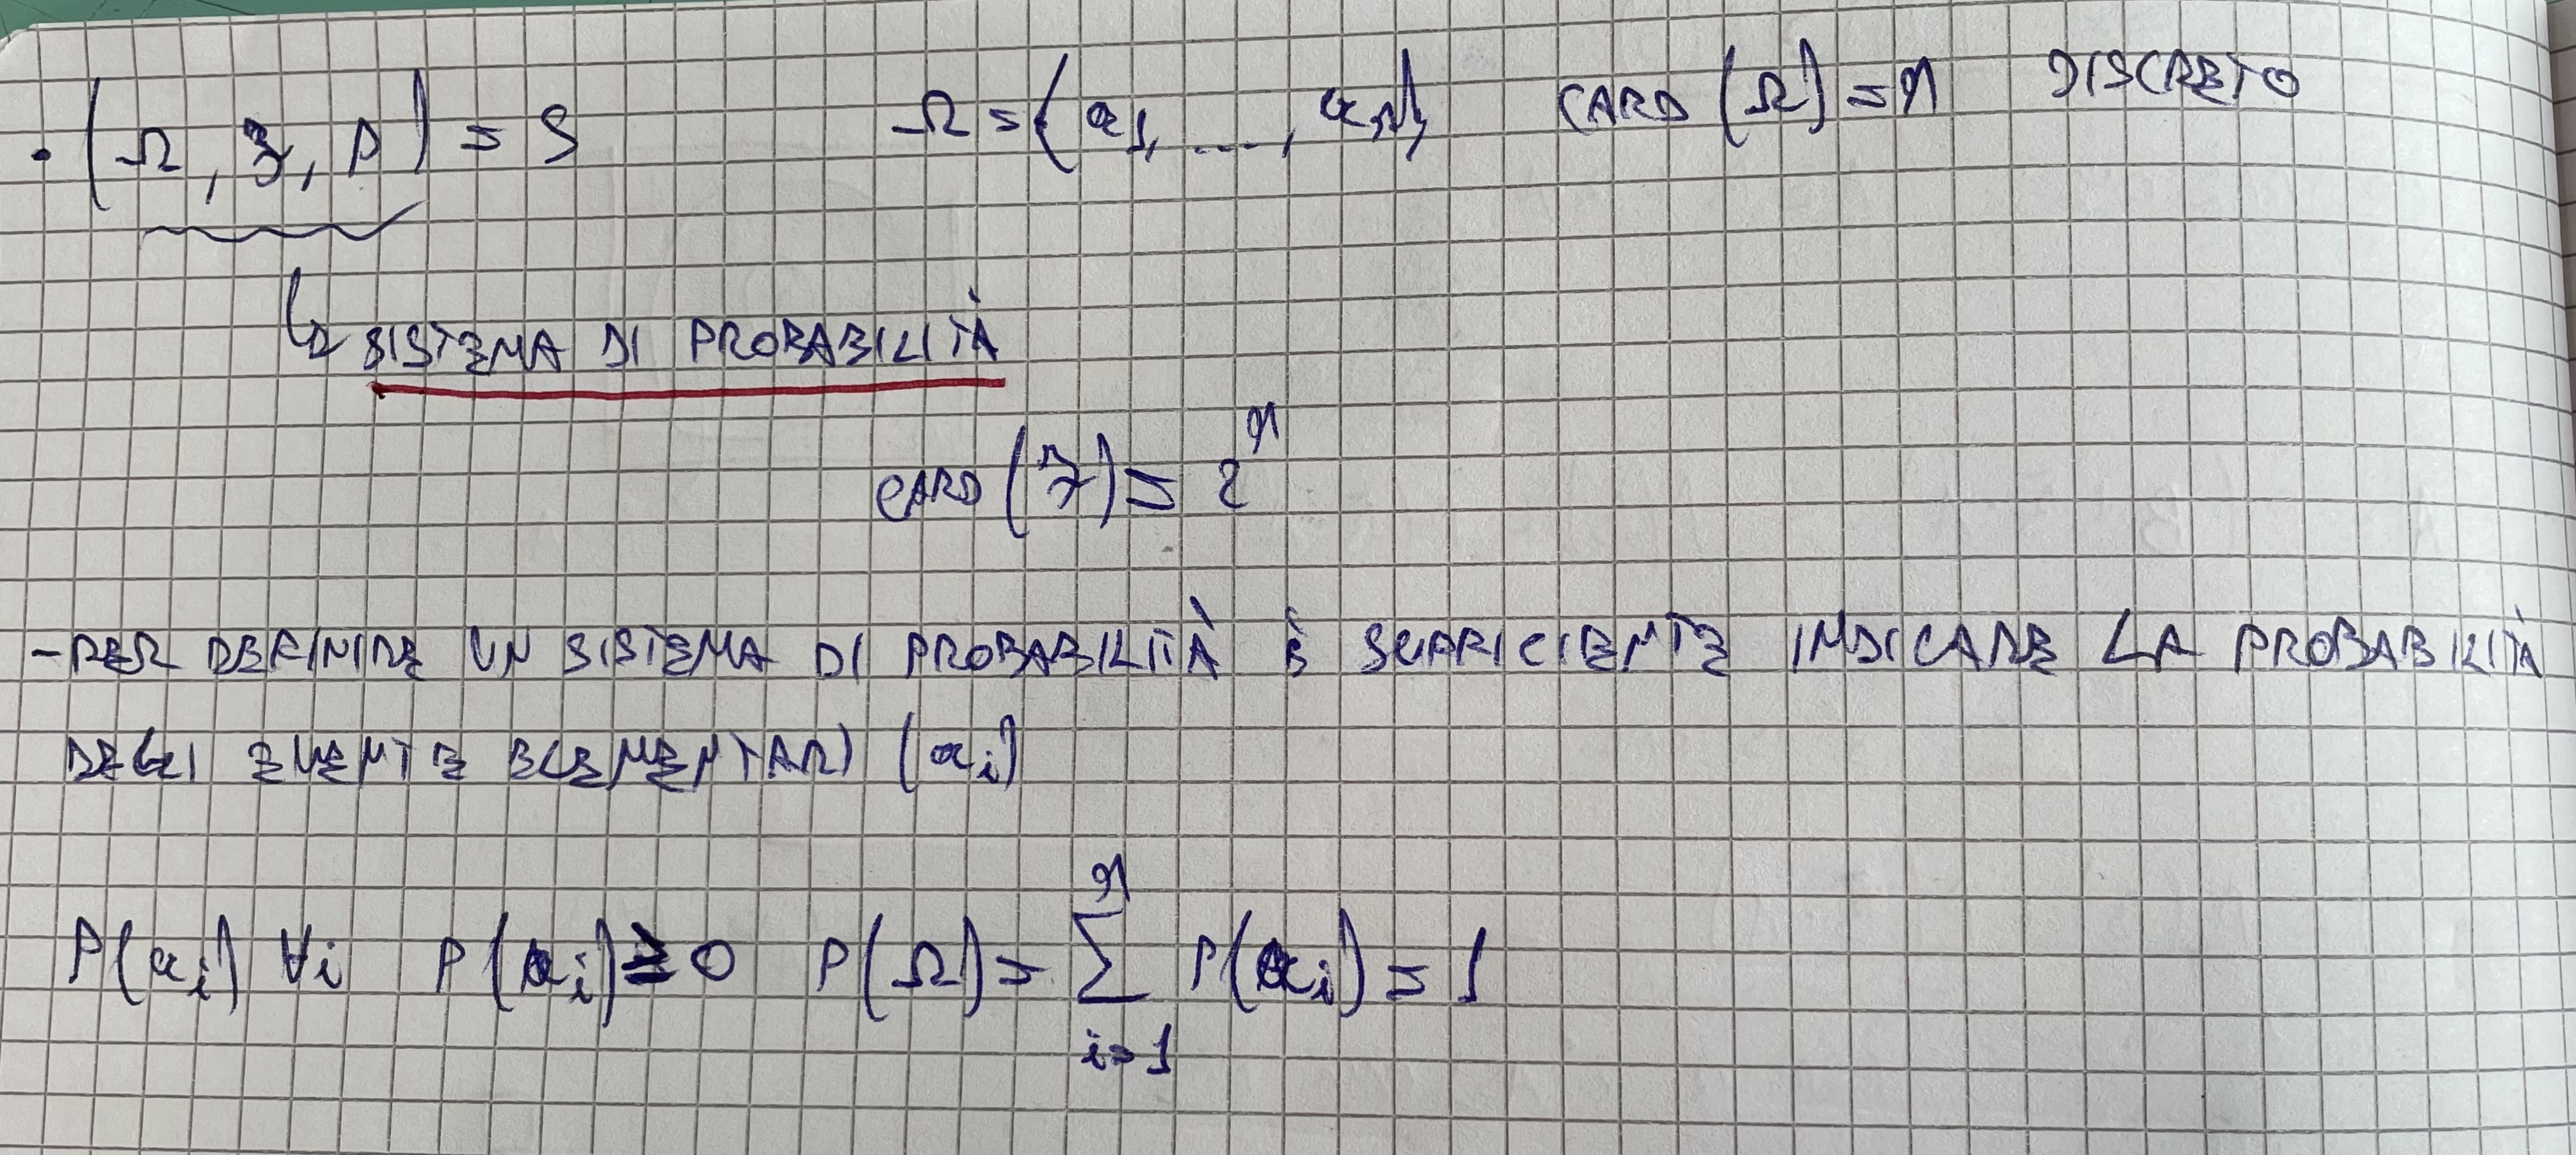 • (Ω, ℱ, P) = S   Ω = {a₁, ...., aₙ}   CARD (Ω) = n   DISCRETO
↳ SISTEMA DI PROBABILITÀ
CARD (ℱ) = 2ⁿ
- PER DEFINIRE UN SISTEMA DI PROBABILITÀ È SUFFICIENTE INDICARE LA PROBABILITÀ
DEGLI EVENTE ELEMENTARI (aᵢ)
P(aᵢ) ∀i   P(aᵢ) ≥ 0   P(Ω) = ∑ᵢ₌₁ⁿ P(aᵢ) = 1